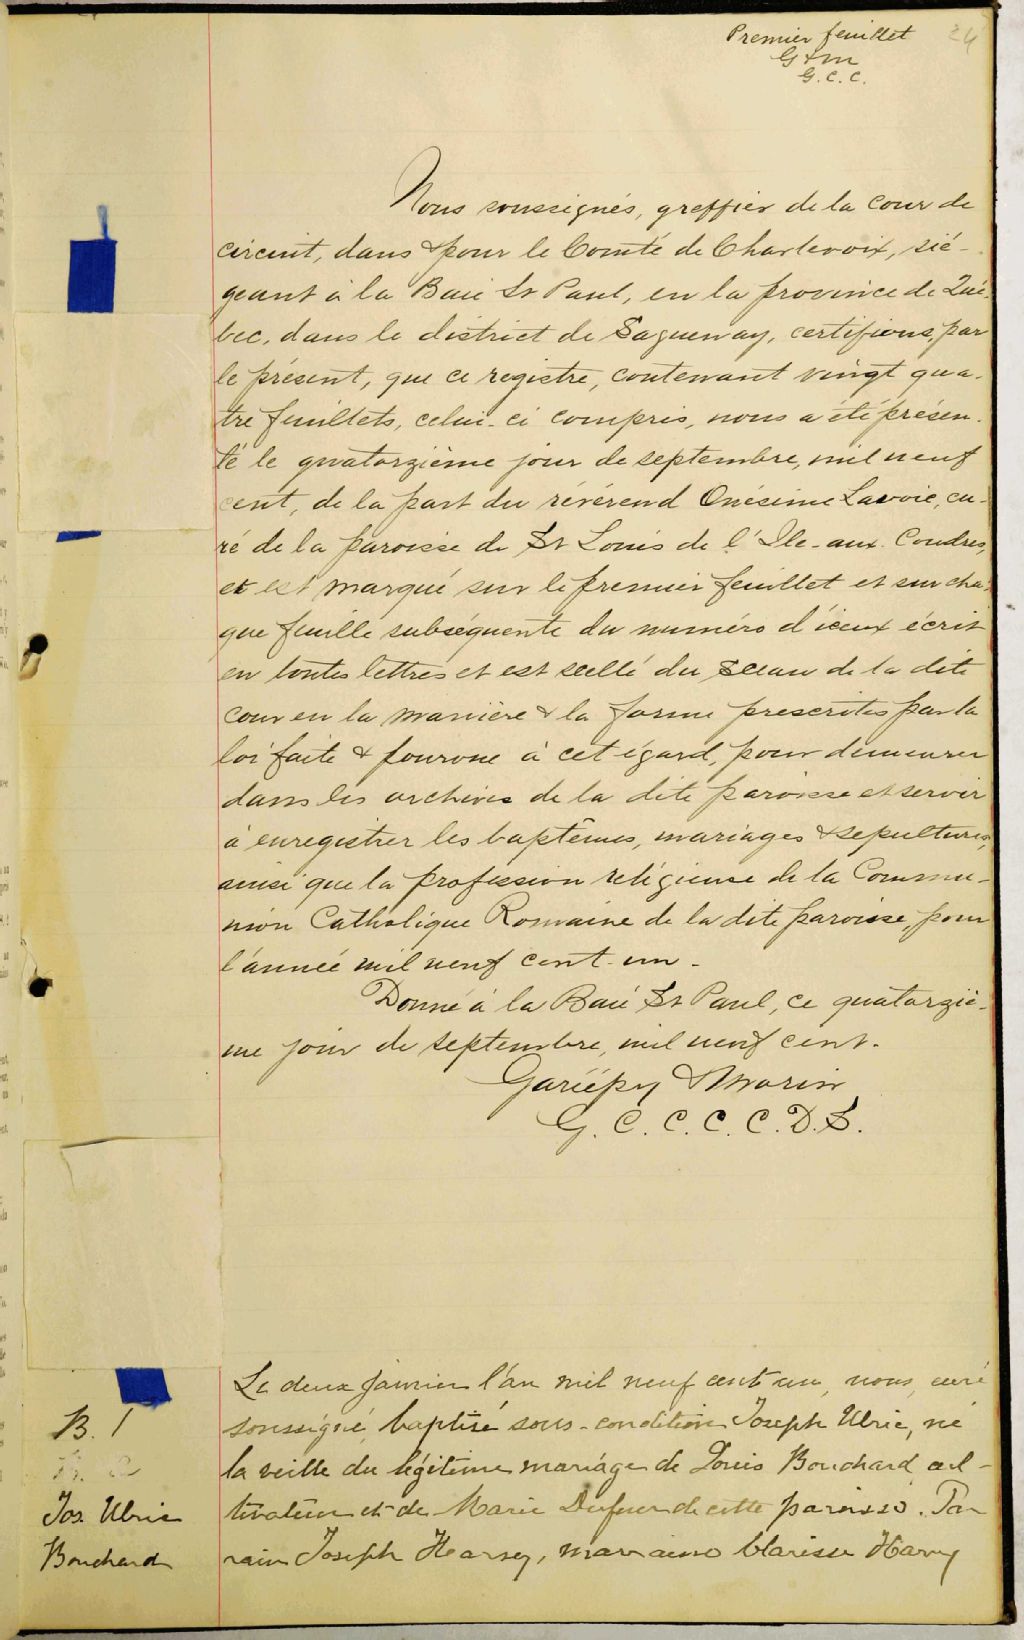 Premier feuillet 24
G & M
G. C. C.
Nous soussignés, greffier de la cour de
circuit, dans & pour le Comté de Charlevoix, sié-
geant à la Baie St Paul, en la province de Qué-
bec, dans le district de Saguenay, certifions, par
le présent, que ce registre, contenant vingt qua-
tre feuillets, celui-ci compris, nous a été présen-
té le quatorzième jour de septembre, mil neuf
cent, de la part du révérend Onésime Lavoie, cu-
ré de la paroisse de St Louis de l'Ile-aux-Coudres,
et est marqué sur le premier feuillet et sur cha-
que feuille subséquente du numéro d'iceux écrit
en toutes lettres et est scellé du sceau de la dite
cour en la manière & la forme prescrites par la
loi faite & pourvue à cet égard, pour demeurer
dans les archives de la dite paroisse et servir
à enregistrer les baptêmes, mariages & sepultures,
ainsi que la profession religieuse de la Commu-
nion Catholique Romaine de la dite paroisse, pour
l'année mil neuf cent-un-
Donné à la Baie St Paul, ce quatorziè-
me jour de septembre, mil neuf cent.
Gariépy & Morin
G. C. C. C. C. D. S.
Le deux janvier l'an mil neuf cent un, nous, curé
B. 1 soussigné, baptisé sous-condition Joseph Ulric, né
la veille du légitime mariage de Louis Bouchard cul-
Jos. Ulric tivateur et de Marie Dufour de cette paroisse. Par
Bouchard rain Joseph Harvey, marraine Clarisse Harvey